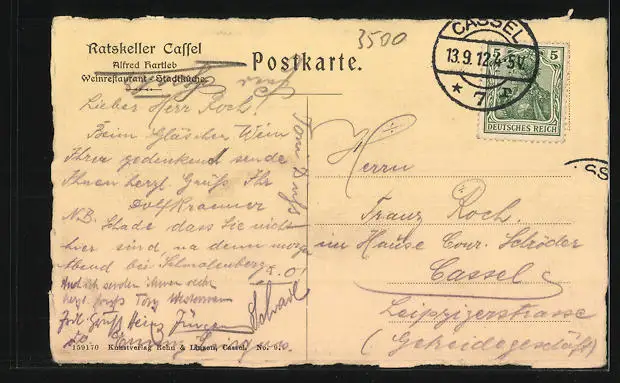 Ratskeller Cassel
Alfred Hartleb
Weinrestaurant - Stadtküche
Postkarte.
3500
CASSEL
13.9.12.4-5V.
* 7 r
5
DEUTSCHES REICH
Lieber Herr Koch!
Beim Gläschen Wein
Ihrer gedenkend sende
Ihnen herzl. Gruss Ihr
Dolf Kraemer
N.B. Schade dass Sie nicht
hier sind, na denn morgen
Abend bei
herzl. Gruss Tony
Heinz
Herrn
Franz Koch.
im Hause Conr. Schröder
Cassel
Leipzigerstrasse
(Getreidegeschäft)
159170 Kunstverlag Rehn & Linzen, Cassel. No. 910.